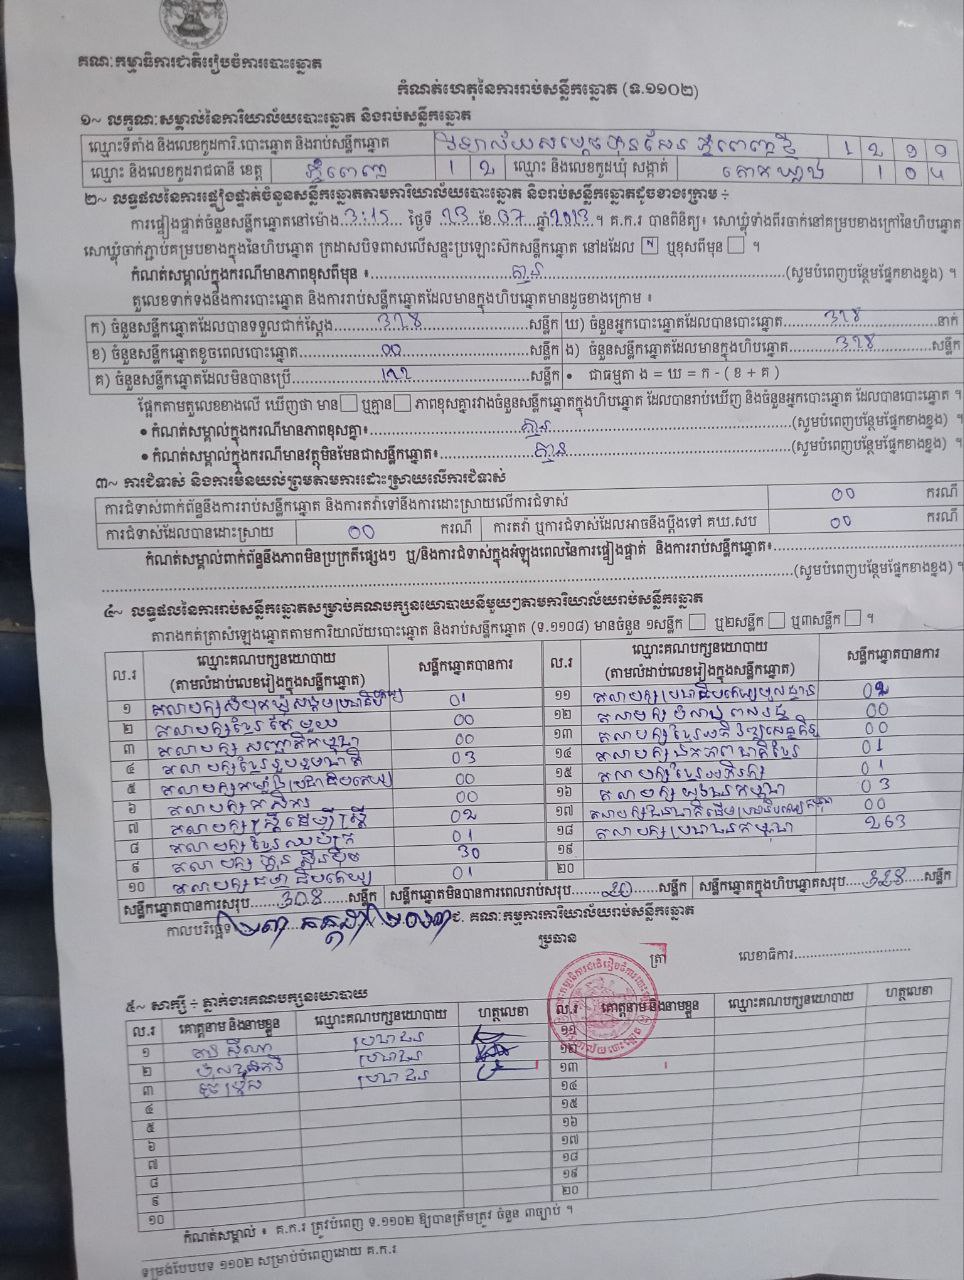 គណៈកម្មាធិការជាតិរៀបចំការបោះឆ្នោត
កំណត់ហេតុនៃការរាប់សន្លឹកឆ្នោត (ទ.១១០២)
១~ លក្ខណៈសម្គាល់នៃការិយាល័យបោះឆ្នោត និងរាប់សន្លឹកឆ្នោត
ឈ្មោះទីតាំង និងលេខកូដការិ.បោះឆ្នោត និងរាប់សន្លឹកឆ្នោត
ឈ្មោះ និងលេខកូដរាជធានី ខេត្ត ភ្នំពេញ 1 2 ឈ្មោះ និងលេខកូដឃុំ សង្កាត់
២~ លទ្ធផលនៃការផ្ទៀងផ្ទាត់ចំនួនសន្លឹកឆ្នោតតាមការិយាល័យបោះឆ្នោត និងរាប់សន្លឹកឆ្នោតដូចខាងក្រោម ÷
ការផ្ទៀងផ្ទាត់ចំនួនសន្លឹកឆ្នោតនៅម៉ោង 3:15 ថ្ងៃទី 23 ខែ 07 ឆ្នាំ ។ គ.ក.រ បានពិនិត្យ៖ សោឃ្លុំទាំងពីរចាក់នៅគម្របខាងក្រៅនៃហិបឆ្នោត
សោឃ្លុំចាក់ភ្ជាប់គម្របខាងក្នុងនៃហិបឆ្នោត ក្រដាសបិទពាសលើសន្ទះប្រឡោះស៊កសន្លឹកឆ្នោត នៅដដែល ឬខុសពីមុន ។
កំណត់សម្គាល់ក្នុងករណីមានភាពខុសពីមុន ៖ គ្មាន (សូមបំពេញបន្ថែមផ្នែកខាងខ្នង) ។
តួលេខទាក់ទងនឹងការបោះឆ្នោត និងការរាប់សន្លឹកឆ្នោតដែលមានក្នុងហិបឆ្នោតមានដូចខាងក្រោម ៖
ក) ចំនួនសន្លឹកឆ្នោតដែលបានទទួលជាក់ស្តែង 328 សន្លឹក ឃ) ចំនួនអ្នកបោះឆ្នោតដែលបានបោះឆ្នោត 328 នាក់
ខ) ចំនួនសន្លឹកឆ្នោតខូចពេលបោះឆ្នោត 00 សន្លឹក ង) ចំនួនសន្លឹកឆ្នោតដែលមានក្នុងហិបឆ្នោត 328 សន្លឹក
គ) ចំនួនសន្លឹកឆ្នោតដែលមិនបានប្រើ សន្លឹក • ជាធម្មតា ង = ឃ = ក - ( ខ + គ )
ផ្អែកតាមតួលេខខាងលើ ឃើញថា មាន ឬគ្មាន ភាពខុសគ្នារវាងចំនួនសន្លឹកឆ្នោតក្នុងហិបឆ្នោត ដែលបានរាប់ឃើញ និងចំនួនអ្នកបោះឆ្នោត ដែលបានបោះឆ្នោត ។
• កំណត់សម្គាល់ក្នុងករណីមានភាពខុសគ្នា៖ គ្មាន (សូមបំពេញបន្ថែមផ្នែកខាងខ្នង) ។
• កំណត់សម្គាល់ក្នុងករណីមានវត្ថុមិនមែនជាសន្លឹកឆ្នោត៖ គ្មាន (សូមបំពេញបន្ថែមផ្នែកខាងខ្នង) ។
៣~ ការជំទាស់ និងការមិនយល់ព្រមតាមការដោះស្រាយលើការជំទាស់
ការជំទាស់ពាក់ព័ន្ធនឹងការរាប់សន្លឹកឆ្នោត និងការតវ៉ាទៅនឹងការដោះស្រាយលើការជំទាស់ 00 ករណី
ការជំទាស់ដែលបានដោះស្រាយ 00 ករណី ការតវ៉ា ឬការជំទាស់ដែលអាចនឹងប្តឹងទៅ គឃ.សប 00 ករណី
កំណត់សម្គាល់ពាក់ព័ន្ធនឹងភាពមិនប្រក្រតីផ្សេងៗ ឬ/និងការជំទាស់ក្នុងអំឡុងពេលនៃការផ្ទៀងផ្ទាត់ និងការរាប់សន្លឹកឆ្នោត៖
(សូមបំពេញបន្ថែមផ្នែកខាងខ្នង) ។
៤~ លទ្ធផលនៃការរាប់សន្លឹកឆ្នោតសម្រាប់គណបក្សនយោបាយនីមួយៗតាមការិយាល័យរាប់សន្លឹកឆ្នោត
តារាងកត់ត្រាសំឡេងឆ្នោតតាមការិយាល័យបោះឆ្នោត និងរាប់សន្លឹកឆ្នោត (ទ.១១០៨) មានចំនួន ១សន្លឹក ឬ២សន្លឹក ឬ៣សន្លឹក ។
ល.រ ឈ្មោះគណបក្សនយោបាយ (តាមលំដាប់លេខរៀងក្នុងសន្លឹកឆ្នោត) សន្លឹកឆ្នោតបានការ ល.រ ឈ្មោះគណបក្សនយោបាយ (តាមលំដាប់លេខរៀងក្នុងសន្លឹកឆ្នោត) សន្លឹកឆ្នោតបានការ
១ 01 ១១ 02
២ គណបក្សខ្មែរតែមួយ 00 ១២ 00
៣ គណបក្សសញ្ជាតិកម្ពុជា 00 ១៣ 00
៤ គណបក្សខ្មែររួបរួមជាតិ 03 ១៤ គណបក្សឯកភាពជាតិខ្មែរ 01
៥ គណបក្សកម្លាំងប្រជាធិបតេយ្យ 00 ១៥ គណបក្សខ្មែរអភិរក្ស 01
៦ គណបក្សកសិករ 00 ១៦ គណបក្សយុវជនកម្ពុជា 03
៧ គណបក្សស្ត្រីដើម្បីស្ត្រី 02 ១៧ 00
៨ គណបក្សខ្មែរឈប់ក្រ 01 ១៨ គណបក្សប្រជាជនកម្ពុជា 263
៩ គណបក្សហ៊្វុនស៊ិនប៉ិច 30 ១៩
១០ គណបក្សធម្មាធិបតេយ្យ 01 ២០
សន្លឹកឆ្នោតបានការសរុប 308 សន្លឹក សន្លឹកឆ្នោតមិនបានការពេលរាប់សរុប 20 សន្លឹក សន្លឹកឆ្នោតក្នុងហិបឆ្នោតសរុប 328 សន្លឹក
កាលបរិច្ឆេទ ២៣ កក្កដា ២០២៣ ជ. គណៈកម្មការការិយាល័យរាប់សន្លឹកឆ្នោត
ប្រធាន
ត្រា លេខាធិការ
៥~ សាក្សី ÷ ភ្នាក់ងារគណបក្សនយោបាយ
ល.រ គោត្តនាម និងនាមខ្លួន ឈ្មោះគណបក្សនយោបាយ ហត្ថលេខា ល.រ គោត្តនាម និងនាមខ្លួន ឈ្មោះគណបក្សនយោបាយ ហត្ថលេខា
១ ប្រជាជន ១១
២ ប្រជាជន ១២
៣ ប្រជាជន ១៣
៤ ១៤
៥ ១៥
៦ ១៦
៧ ១៧
៨ ១៨
៩ ១៩
១០ ២០
កំណត់សម្គាល់ ៖ គ.ក.រ ត្រូវបំពេញ ទ.១១០២ ឱ្យបានត្រឹមត្រូវ ចំនួន ៣ច្បាប់ ។
ទម្រង់បែបបទ ១១០២ សម្រាប់បំពេញដោយ គ.ក.រ